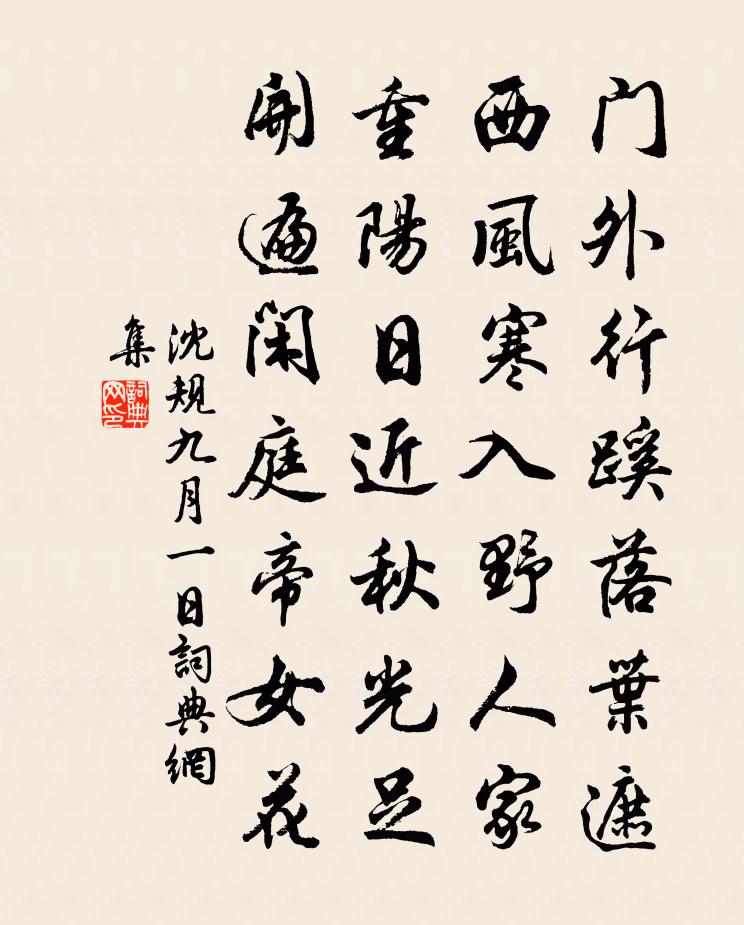 门外行蹊落葉遮
西風寒入野人家
重陽日近秋光足
開遍闲庭帝女花
沈规九月一日詞典網
集
詞典
网印